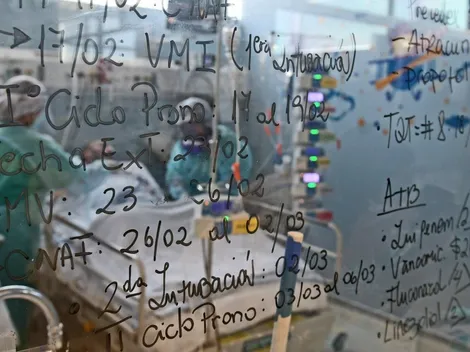 17/02: VMI (1era Intubación)
I° Ciclo Prono: 17 al 19/02
Fecha Ext: 23/02
MV: 23 26/02
CNAF: 26/02 al 02/03
• 2da Intubación: 02/03
II Ciclo Prono: 03/03 al 06/03
- Atracuri
- Propofol
• TQT: #8
ATB
• Imipenem
• Vancomic.
• Fluconazol
• Linezolid